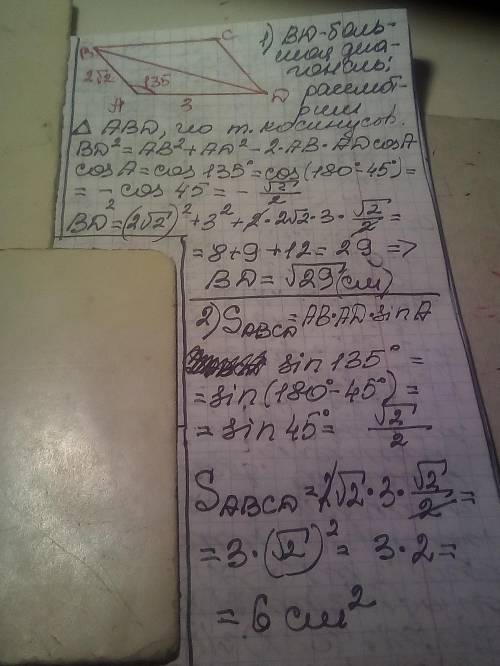 B C
2√2 135
A 3 D
1) BD-боль-
шая диа-
гональ.
рассмот-
рим
△ ABD, по т. косинусов.
BD²=AB²+AD²-2·AB·AD cosA
cosA=cos135°=cos(180°-45°)=
=-cos45=-√2/2
BD²=(2√2)²+3²+2·2√2·3·√2/2=
=8+9+12=29 =>
BD=√29(см)
2) S_ABCD=AB·AD·sinA
sin135°=
=sin(180°-45°)=
=sin45°=√2/2
S_ABCD=2√2·3·√2/2=
=3·(√2)²=3·2=
=6см²